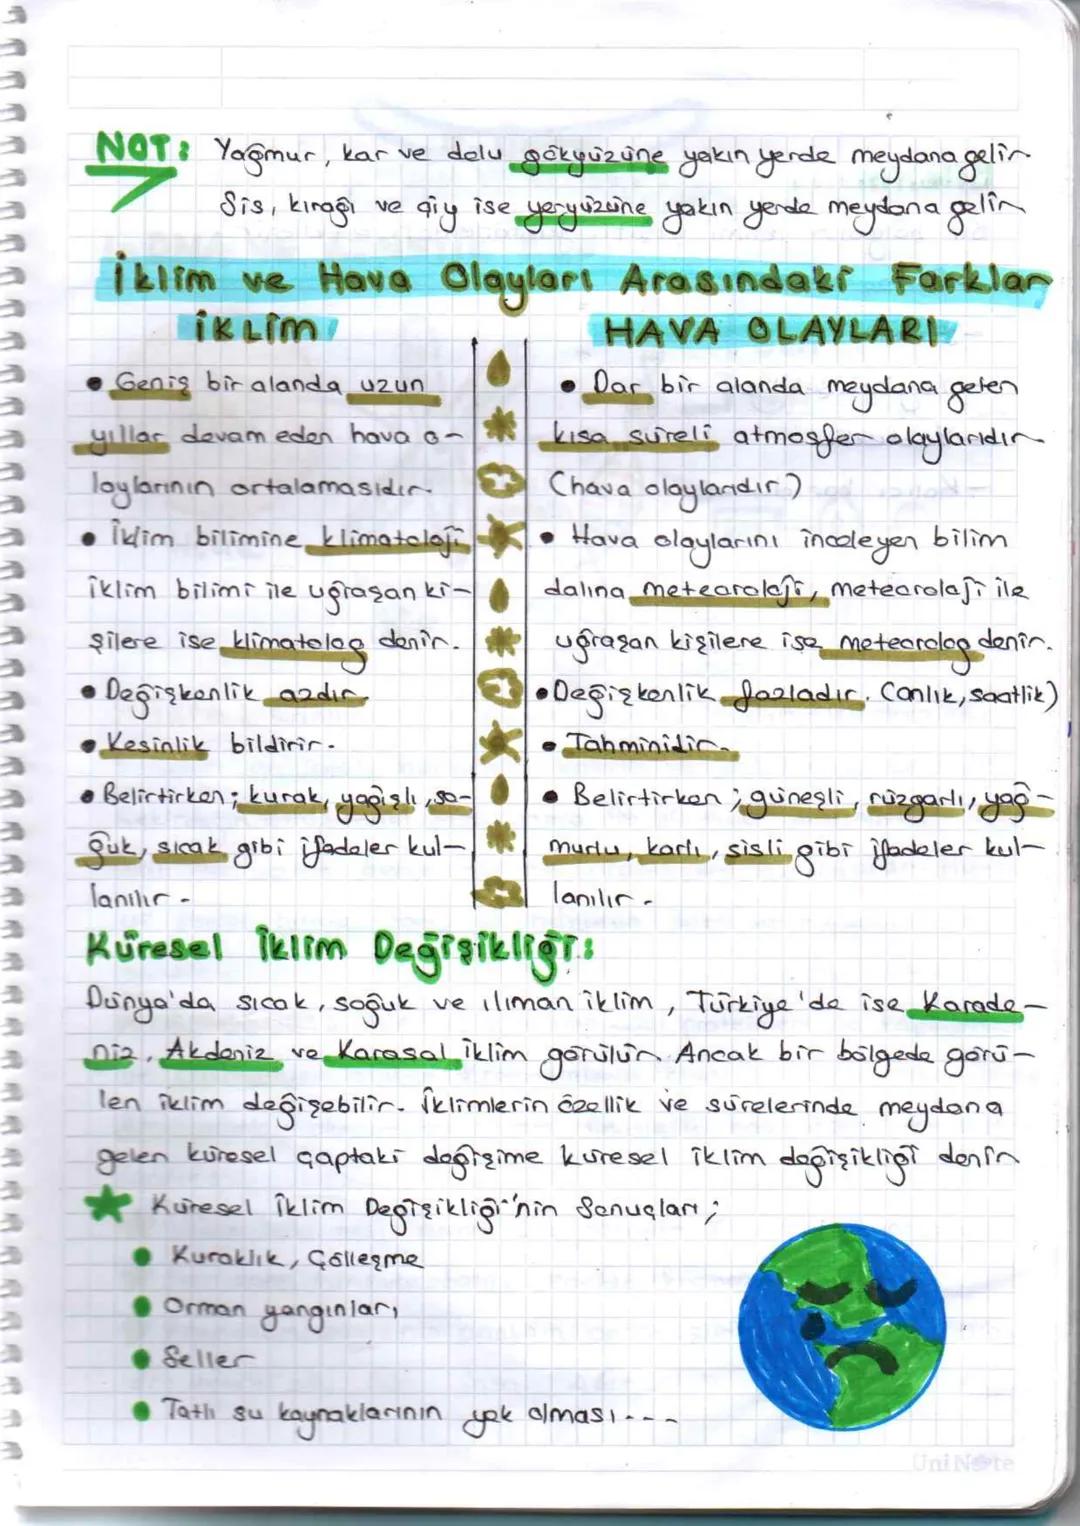 NOT: Yağmur, kar ve dolu gökyüzüne yakın yerde meydana gelir.
Sis, kırağı ve çiy ise yeryüzüne yakın yerde meydana gelir.
İklim ve Hava Olayları Arasındaki Farklar
İKLİM
• Geniş bir alanda uzun
yıllar devam eden hava o-
laylarının ortalamasıdır.
• İklim bilimine klimatoloji
iklim bilimi ile uğraşan ki-
şilere ise klimatolog denir.
• Değişkenlik azdır.
• Kesinlik bildirir.
• Belirtirken; kurak, yağışlı, so-
ğuk, sıcak gibi ifadeler kul-
lanılır.
HAVA OLAYLARI
• Dar bir alanda meydana gelen
kısa süreli atmosfer olaylarıdır.
(hava olaylarıdır)
• Hava olaylarını inceleyen bilim
dalına meteoroloji, meteoroloji ile
uğraşan kişilere ise meteorolog denir.
• Değişkenlik fazladır. (anlık, saatlik)
• Tahminidir.
• Belirtirken; güneşli, rüzgarlı, yağ-
murlu, karlı, sisli gibi ifadeler kul-
lanılır.
Küresel İklim Değişikliği:
Dünya'da sıcak, soğuk ve ılıman iklim, Türkiye'de ise Karade-
niz, Akdeniz ve Karasal iklim görülür. Ancak bir bölgede görü-
len iklim değişebilir. İklimlerin özellik ve sürelerinde meydana
gelen küresel çaptaki değişime küresel iklim değişikliği denir.
Küresel İklim Değişikliği'nin Sonuçları;
• Kuraklık, Çölleşme
• Orman yangınları
• Seller
• Tatlı su kaynaklarının yok olması...
UniNote